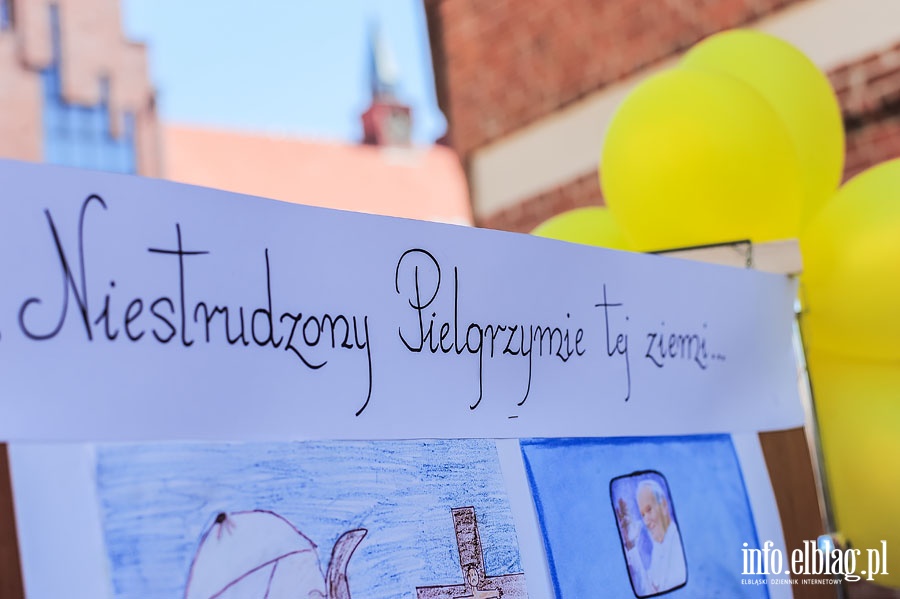 Niestrudzony Pielgrzymie tej ziemi...
info.elblag.pl
ELBLĄSKI DZIENNIK INTERNETOWY